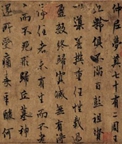 仲尼夢奠七十有二周王
九齡俱不滿百彭祖資
以導養樊重任性裁過
盈數終歸冥滅無有得
停住者未有生而不老
老而不死形歸丘墓神
還所受痛毒辛酸何